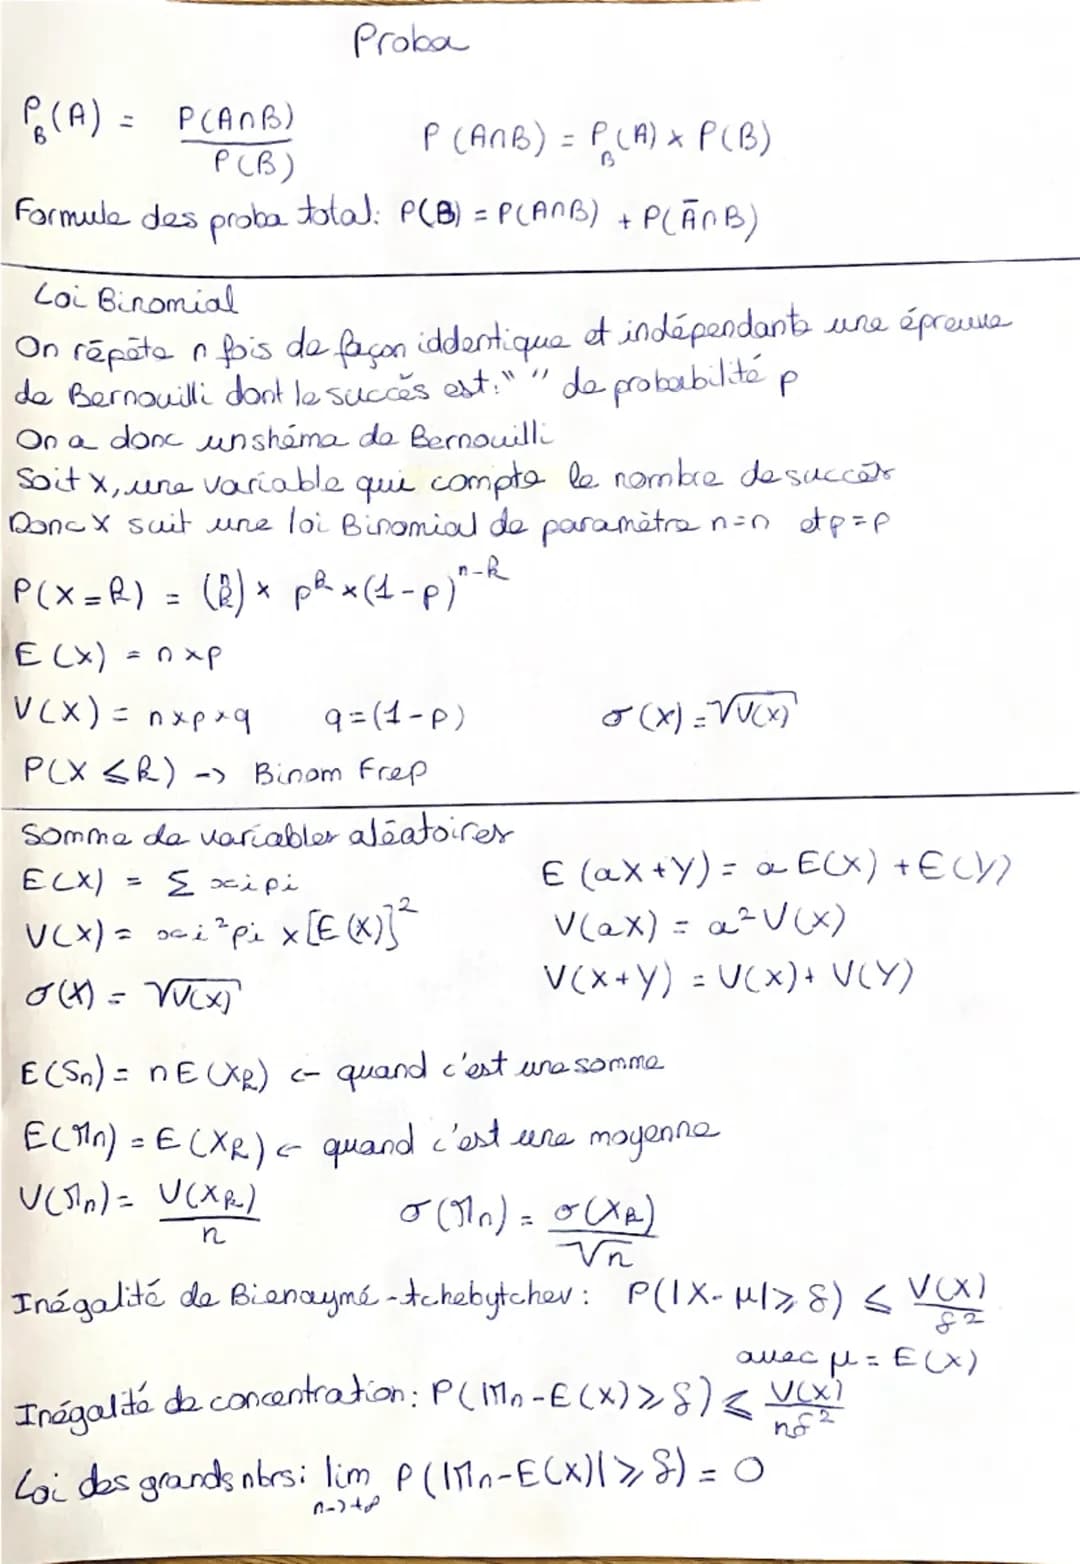 Proba
P_B(A) = P(A∩B) / P(B)    P(A∩B) = P_B(A) × P(B)
Formule des proba total: P(B) = P(A∩B) + P(Ā∩B)
Loi Binomial
On répète n fois de façon iddentique et indépendante une épreuve
de Bernouilli dont le succès est:" " de probabilité p
On a donc un shéma de Bernouilli
Soit X, une variable qui compte le nombre de succès
Donc X suit une loi Binomial de paramètre n=n et p=p
P(X=k) = (n k) × p^k × (1-p)^{n-k}
E(X) = n×p
V(X) = n×p×q    q=(1-p)    σ(X) = √V(X)
P(X ≤ k) -> Binom Frep
Somme de variables aléatoires
E(X) = Σ xi pi    E(aX+Y) = a E(X) + E(Y)
V(X) = xi² pi × [E(X)]²    V(aX) = a² V(X)
σ(X) = √V(X)    V(X+Y) = V(X) + V(Y)
E(Sn) = n E(Xk) <- quand c'est une somme
E(Mn) = E(Xk) <- quand c'est une moyenne
V(Mn) = V(Xk) / n    σ(Mn) = σ(Xk) / √n
Inégalité de Bienaymé-tchebytchev: P(|X-μ| ≥ δ) ≤ V(X) / δ²
avec μ = E(X)
Inégalité de concentration: P(|Mn-E(X) ≥ δ) ≤ V(X) / nδ²
Loi des grands nbrs: lim n->+∞ P(|Mn-E(X)| ≥ δ) = 0